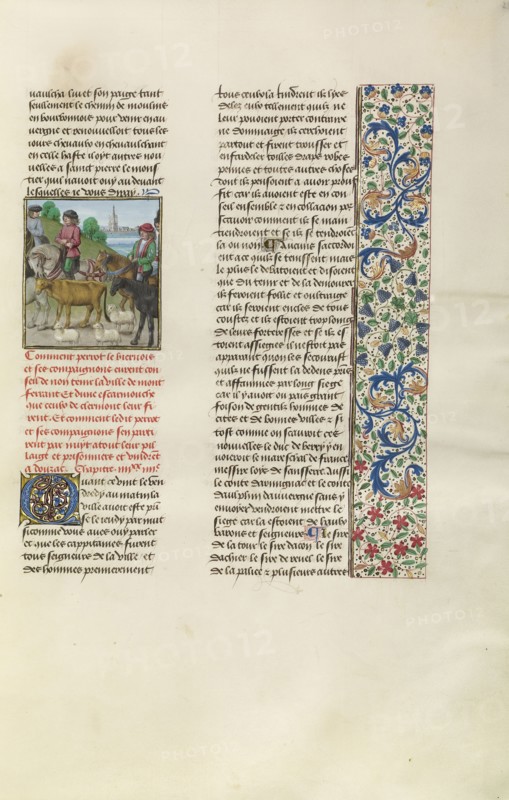 vaulcha luy et son paige tant
seullement le chemin de moulins
en bourbonnois pour venir en au
vergne et renouvelloit tous les
iours chevaulx en chevauchant
en celle haste il oyt autres nou
velles a saint pierre le mons
tier qui luy au devant
lesquelles ie vous diray
Comment perrot le biernois
et ses compaignons eurent con
seil de non tenir la ville de mont
ferrant Et dune escarmouche
que ceulx de clermont leur fi
rent Et comment ledit perrot
et ses compaignons sen parti
rent par nuyt atout leur pil
laige et prisonniers et vindrent
a douzac Chapitre iiiixx iiiie
Quant ce vint le ven
dredy au matin la
ville avoit este pri
se le ieudy par nuit
si comme vous aves ouy parler
et que les cappitaines furent
tous seigneurs de la ville et
des hommes premierement
tous ceulx la tindrent ilz lyes
delez eulx tellement quilz ne
leur povoient porter contraire
ne dommaige ilz cerchoient
partout et firent trousser et
enfardeler toilles draps robes
pennes et toutes autres choses
dont ilz pensoient a avoir prou
fit car ilz avoient este en con
seil ensemble et en collacion po
scavoir comment ilz se main
tiendroient et se ilz se tendroiēt
la ou non Aucuns sacordoi
ent a ce quilz se tenissent mais
le plus le debatoient et disoient
que du tenir et de la demourer
ilz feroient follie et oultraige
car ilz seroient enclos de tous
coustez et ilz estoient trop loing
de leurs forteresses et se ilz es
toient assiegies il nestoit pas
apparant quon les secourust
quilz ne fussent la dedens pris
et affammes par long siege
car il y avoit ou pais grant
foison de gentilz hommes de
cites et de bonnes villes et si
tost comme on scauroit ces
nouvelles le duc de berry y en
voieroit le mareschal de france
messire loys de sanserre Aussi
le conte darmignac et le conte
daulphin dauvergne sans y
envoyer vendroient mettre le
siege car la estoient de haulx
barons et seigneurs le sire
de la tour le sire dacon le sire
dachier le sire de revel le sire
de la palice et plusieurs autres
PHOTO12